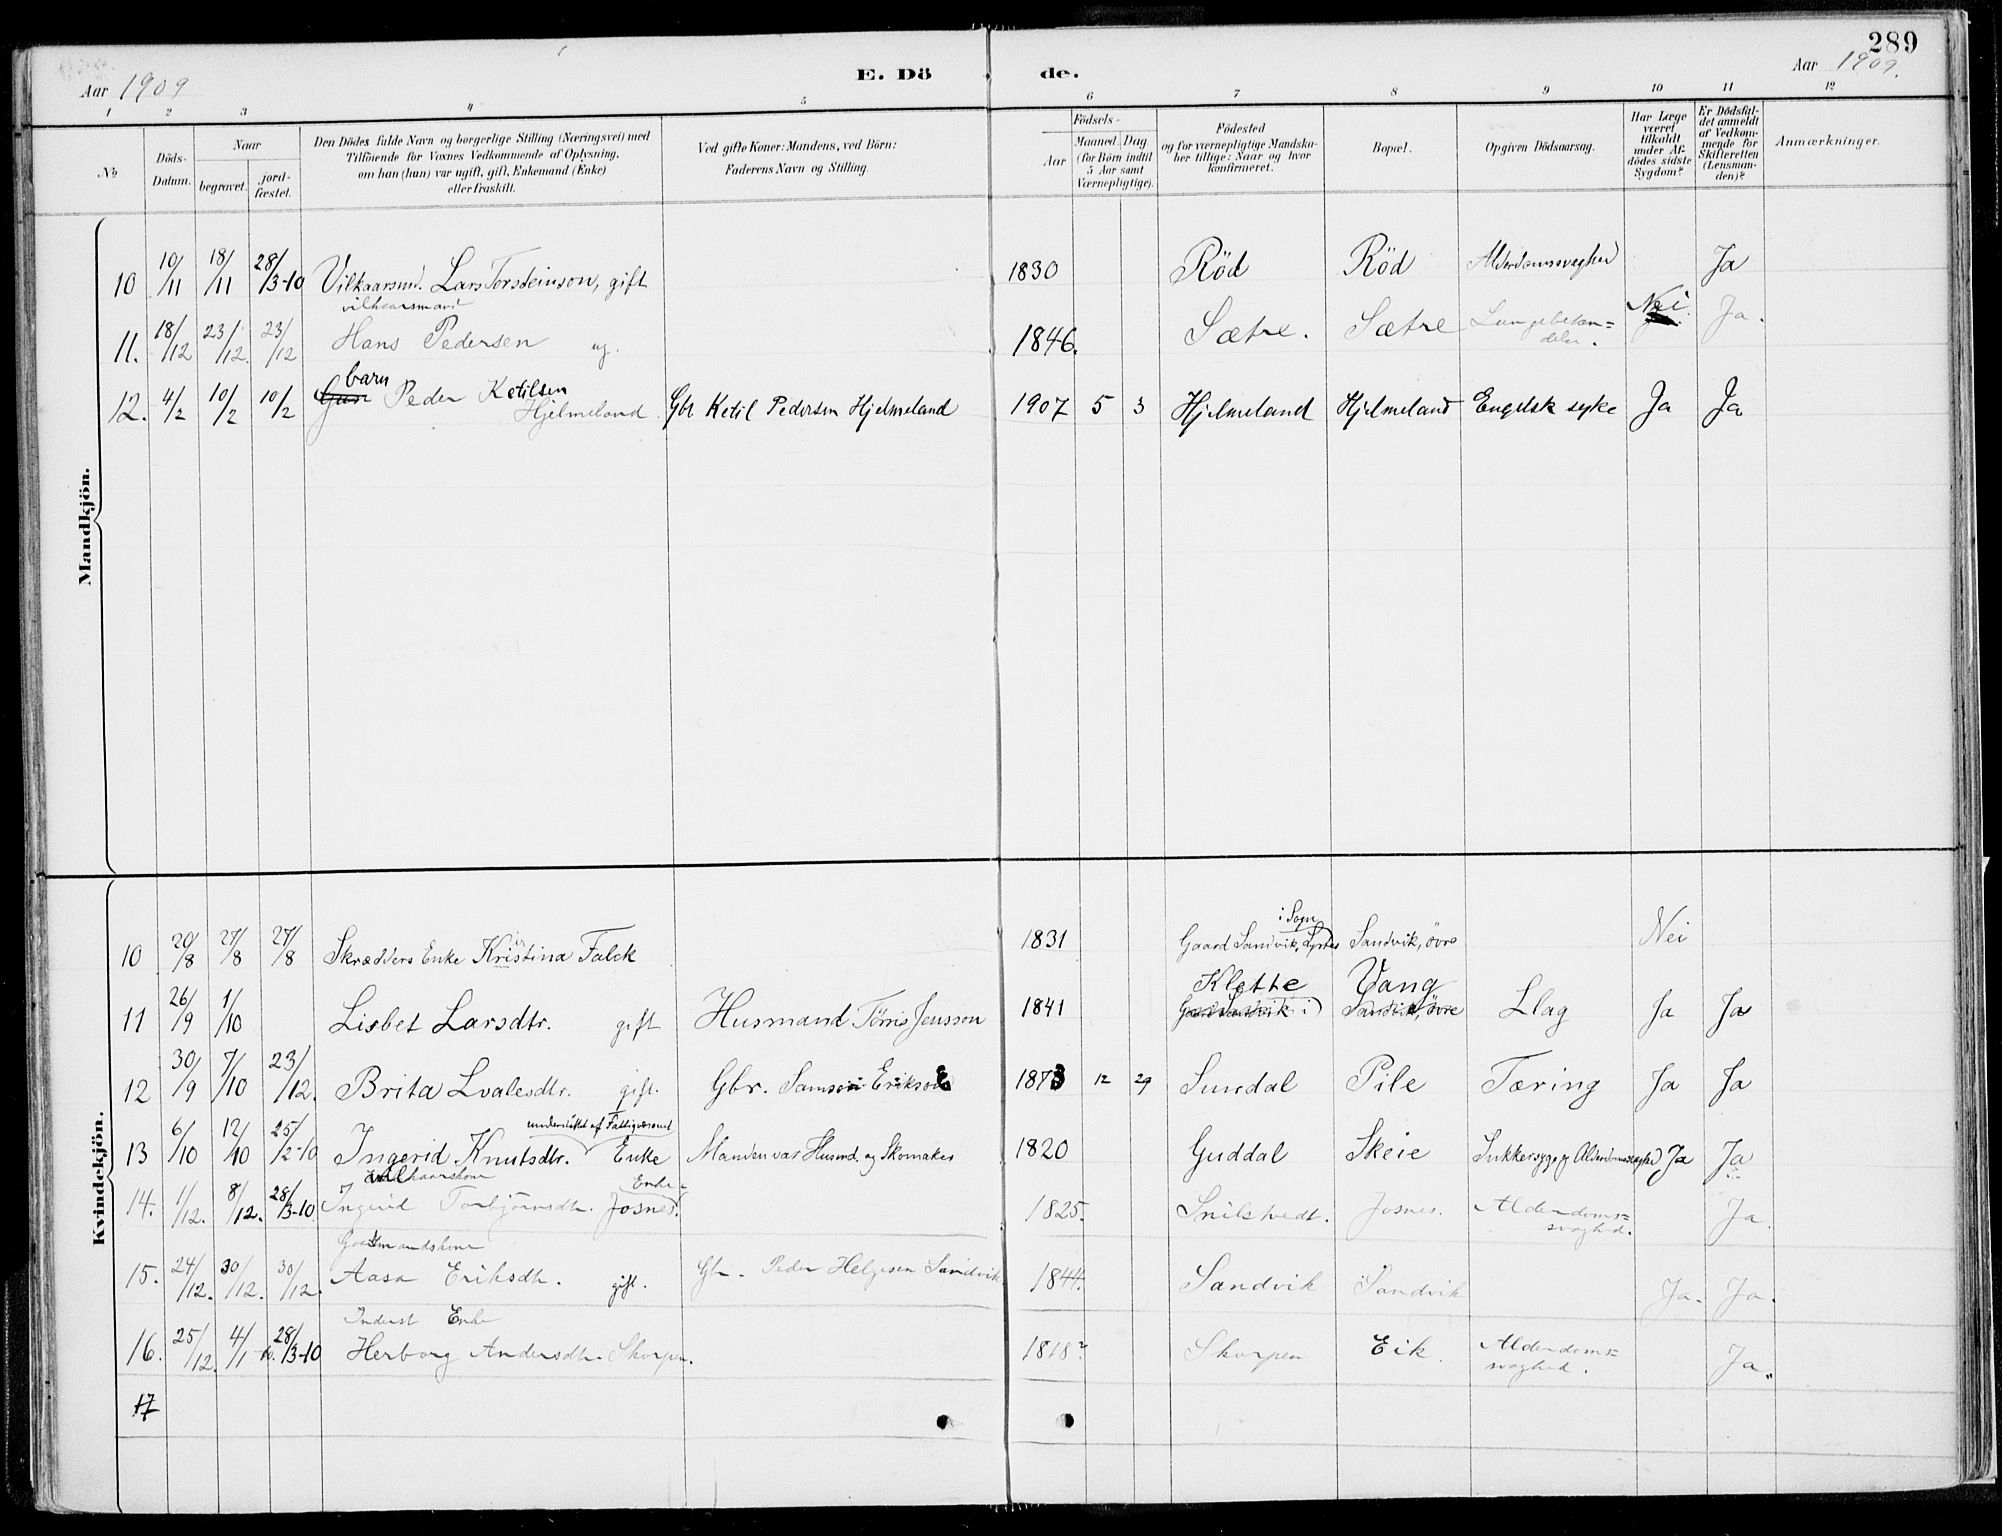 289
Aar 1909
E. Dö
de.
Aar 1909.
1 2 3 4 5 6 7 8 9 10 11 12
No
Döds-Datum.
Naar
begravet.
jord-fæstet.
Den Dödes fulde Navn og borgerlige Stilling (Næringsvei) med
Tilföiende for Voxnes Vedkommende af Oplysning,
om han (hun) var ugift, gift, Enkemand (Enke)
eller fraskilt.
Ved gifte Koner: Mandens, ved Börn:
Faderens Navn og Stilling.
Födsels-
Aar
Maaned. Dag
(for Börn indtil
5 Aar samt
Værnepligtige).
Födested
og for værnepligtige Mandska-
ber tillige: Naar og hvor
konfirmeret.
Bopæl.
Opgiven Dödsaarsag.
Har Læge
været
tilkaldt
under Af-
dödes sidste
Sygdom?
Er Dödsfal-
det anmeldt
af Vedkom-
mende for
Skifteretten
(Lensman-
den)?
Anmærkninger.
Mandkjön.
10 10/11 18/11 28/3-10 Vilkaarsmd. Lars Torsteinson, gift 1830 Röd Röd Alderdomssvaghed Ja
vilkaarsmand
11. 18/12 23/12. 23/12 Hans Pedersen ug. 1846. Sætre. Sætre Lungebetæn=
delse. Nei. Ja.
barn
12. 4/2 10/2 10/2 Peder Ketilsen
Hjelmeland Gbr Ketil Pedersen Hjelmeland 1907 5 3 Hjelmeland Hjelmeland Engelsk syke Ja Ja
Kvindekjön.
i Sogn
10 20/8 27/8 27/8 Skrædders Enke Kristina Falck 1831 Gaard Sandvik, Sandvik, övre Nei
Klette Vang
11 26/9 1/10 Lisbet Larsdtr. gift Husmand Törris Jensson 1841 Gaard Sandvik i Sandvik, övre Slag Ja Ja
12 30/9 7/10 23/12. Brita Svalesdtr. gift. Gbr. Samson Erikson 1873 12 29 Sundal Pile Tæring Ja Ja
understöttet af Fattigvæsenet
13 6/10 12/10 25/2-10 Ingerid Knutsdtr. Enke Manden var Husmd. og Skomaker 1820 Guddal Skeie Sukkersyge og Alderdomssvaghed Ja Ja
vilkaarskone Enke
14. 1/12. 8/12. 28/3-10. Ingerid Torbjörnsdtr. Josnes. 1825. Snilstvedt. Josnes. Alderdoms=
svaghed. Ja.
Gaardmandskone
15. 24/12. 30/12. 30/12. Aasa Eriksdtr. gift. Gbr. Peder Helgesen Sandvik 1844. Sandvik Sandvik Ja. Ja.
Inderst Enke
16. 25/12. 4/1 10. 28/3-10 Herborg Andersdtr. Skorpen. 1818? Skorpen Eik. Alderdoms=
svaghed. Ja.
17